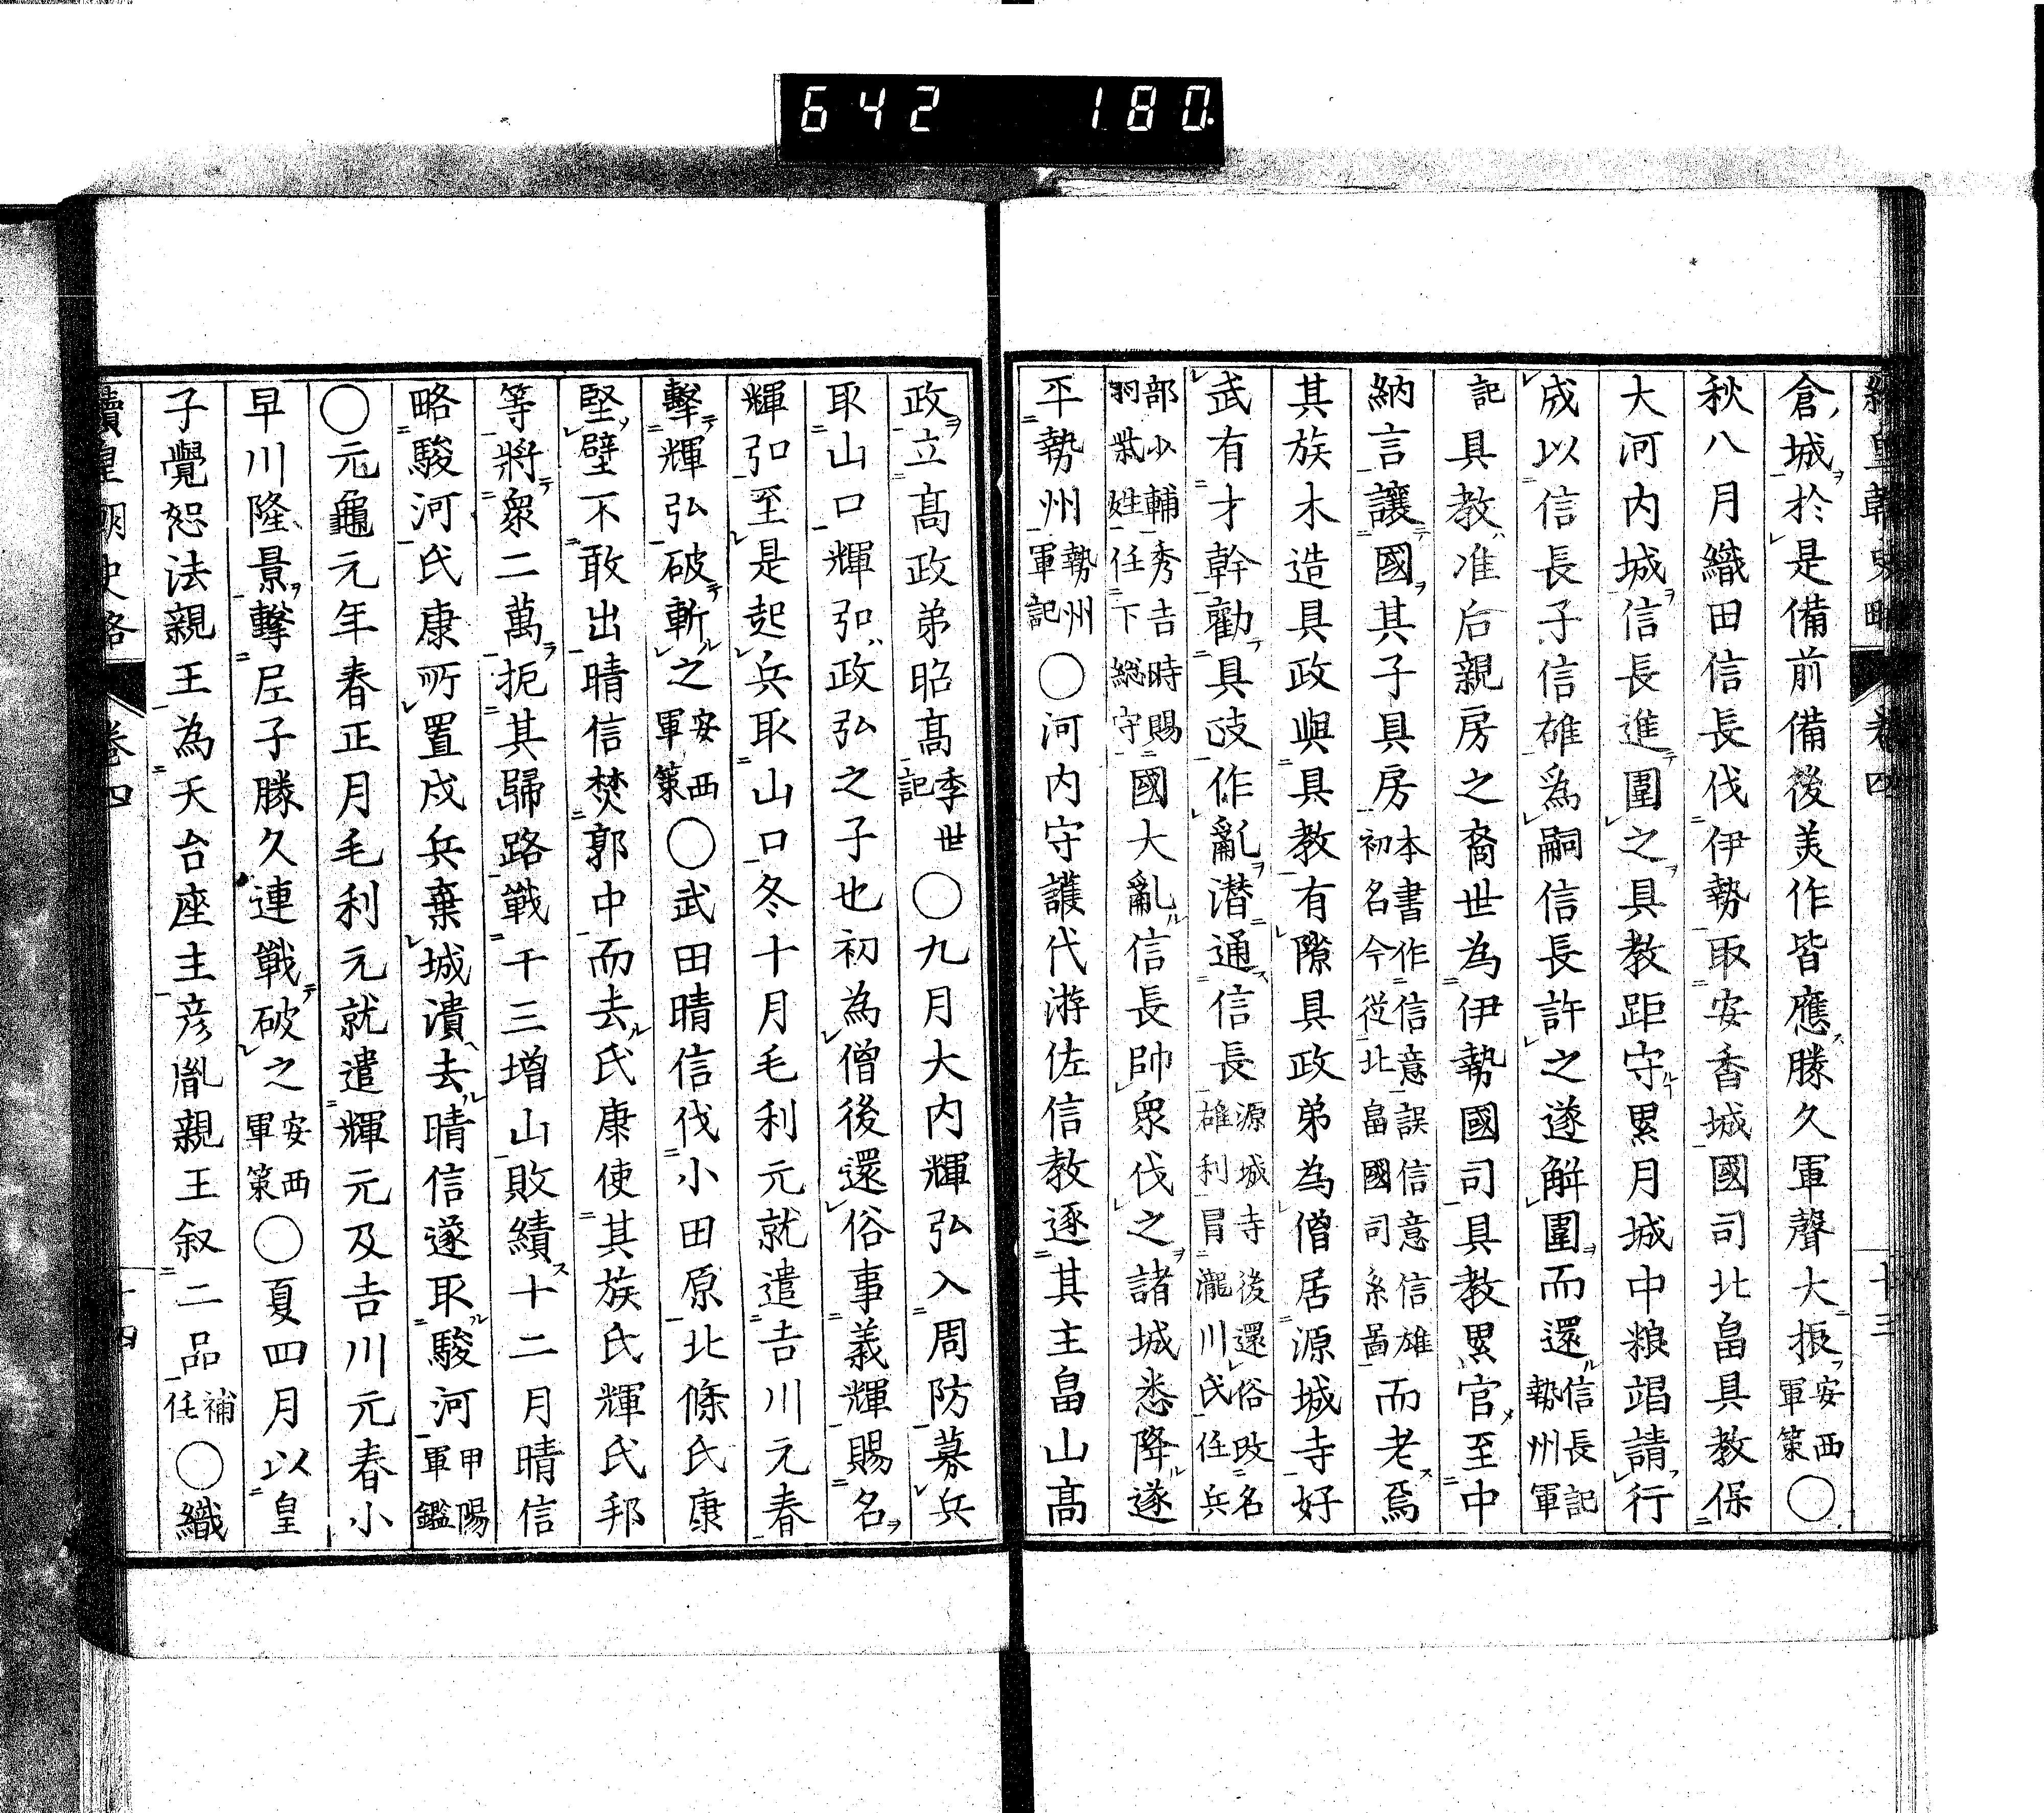 642 180
倉城於是備前備後美作皆應勝久軍聲大振安西軍策○
秋八月織田信長伐伊勢取安香城國司北畠具教保
大河内城信長進圍之具教距守累月城中粮竭請行
成以信長子信雄爲嗣信長許之遂解圍而還信長記勢州軍
記具教准后親房之裔世為伊勢國司具教累官至中
納言讓國其子具房本書作信意誤信意信雄初名今從北畠國司系啚而老焉
其族木造具政與具教有隙具政弟為僧居源城寺好
武有才幹勸具政作亂潜通信長源城寺後還俗改名雄利冒瀧川氏任兵
部少輔秀吉時賜羽柴姓任下総守國大亂信長帥衆伐之諸城悉降遂
平勢州勢州軍記○河内守護代游佐信教逐其主畠山高
政立髙政弟昭髙季世記○九月大内輝弘入周防募兵
取山口輝弘政弘之子也初為僧後還俗事義輝賜名
輝弘至是起兵取山口冬十月毛利元就遣吉川元春
擊輝弘破斬之安西軍策○武田晴信伐小田原北條氏康
堅壁不敢出晴信焚郭中而去氏康使其族氏輝氏邦
等將衆二萬扼其歸路戰于三増山敗績十二月晴信
略駿河氏康所置戍兵棄城潰去晴信遂取駿河甲陽軍鑑
○元龜元年春正月毛利元就遣輝元及吉川元春小
早川隆景擊尼子勝久連戰破之安西軍策○夏四月以皇
子覺恕法親王為天台座主彦胤親王叙二品補任○織
續皇朝史略 卷四 十四